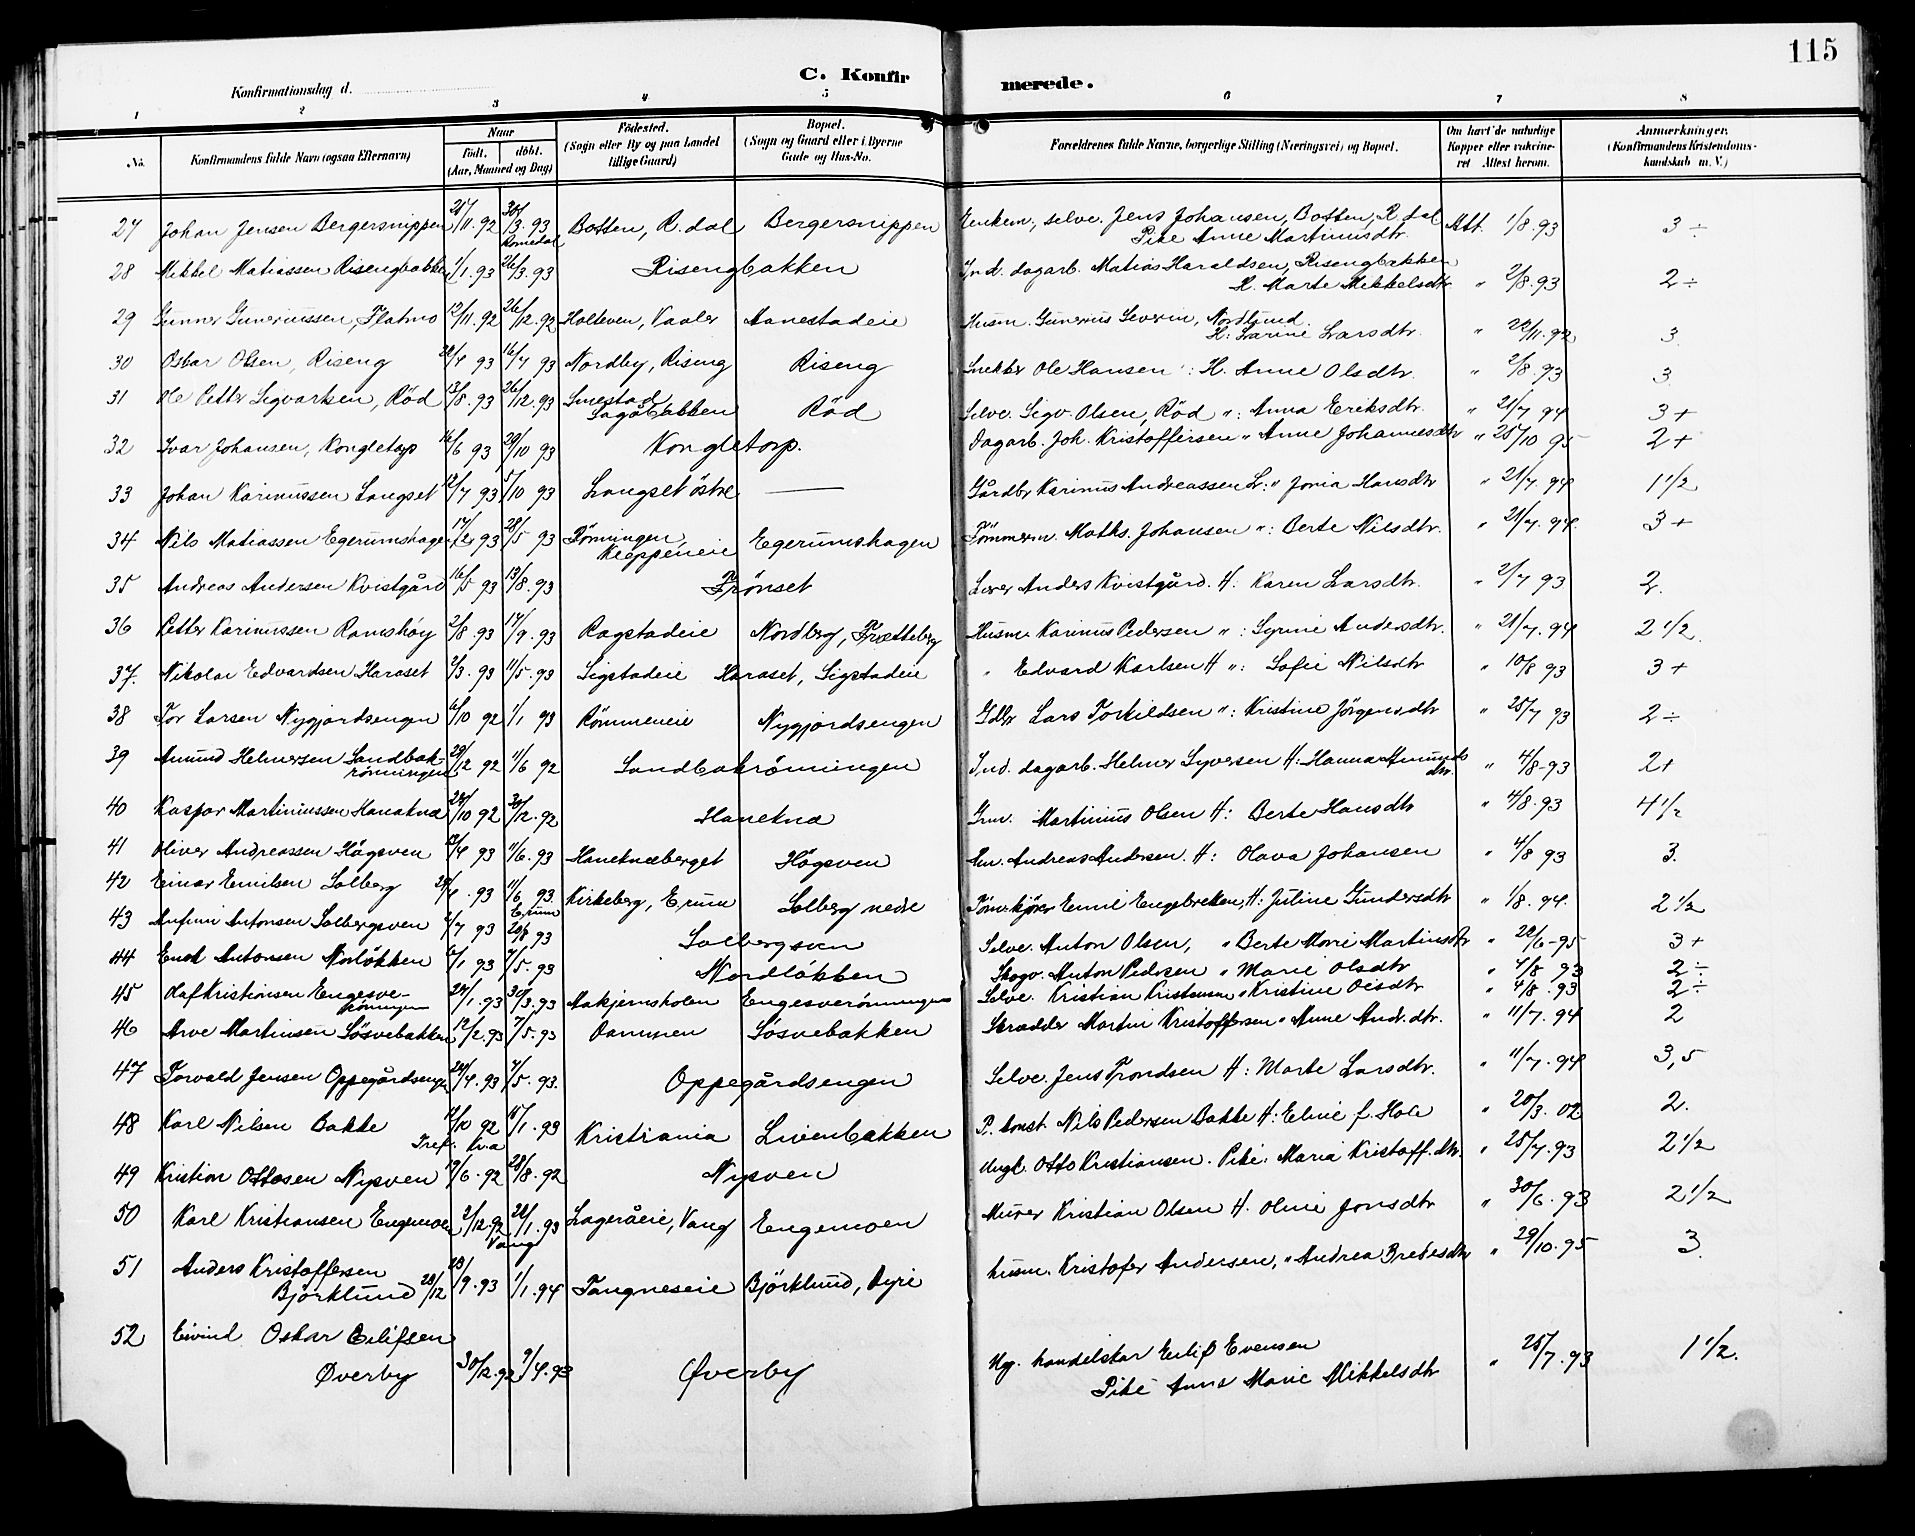 115
C. Konfir merede.
Konfirmationsdag d.
1 2 3 4 5 6 7 8
No. Konfirmandens fulde Navn (ogsaa Efternavn) Naar Födt. döbt. (Aar, Maaned og Dag) Födested. (Sogn eller By og paa Landet tillige Gaard) Bopæl. (Sogn og Gaard eller i Byerne Gade og Hus-No. Forældrenes fulde Navne, borgerlige Stilling (Næringsvei) og Bopæl. Om havt de naturlige Kopper eller vakcineret Attest herom. Anmerkninger. (Konfirmandens Kristendomskundskab m. V.)
27 Johan Jensen Bergersnippen 30/3.93 Romedal Botten, R.dal Bergersnippen selve. Jens Johansen, Botten, R.dal
Pike Anne Martinusdtr. Att. 1/8.93 3 ÷
28 Mikkel Matiassen Risengbakken 1/1.93 26/3.93 Risengbakken Ind. dagarb. Matias Haraldsen, Risengbakken
H. Marte Mikkelsdtr " 2/8.93 2 ÷
29 Gunner Gunerussen, Flatmo 12/11.92 26/12.92 Holteven, Vaaler Aanestadeie Husm. Gunerius Severin, Nordlund.
H: Karine Larsdtr. " 22/11.92 3
30 Oskar Olsen, Riseng 16/4 93 Nordby, Riseng Riseng Snekker Ole Hansen : H. Anne Olsdtr. " 2/8.93 3.
31 Ole Petter Sigvartsen, Röd 13/8.93 26/12.93 Smestad Sagabakken Röd Selve. Sigv. Olsen, Röd ": Anna Eriksdtr. " 21/7 94 3 +
32 Ivar Johansen, Kongletorp 16/6 93 29/10 93 Kongletorp. Dagarb. Joh. Kristoffersen " Anne Johannesdtr " 25/10 95 2 +
33 Johan Karinussen Langset 12/7 93 5/10 93 Langset östre — Gårdbr Karinus Andreassen L: " Jonia Hansdtr " 21/7.94 1 1/2
34 Nils Matiassen Egerumshagen 17/2 93 28/5 93 Rönningen Kleppeneie Egerumshagen Tömmerm. Maths. Johansen ": Berte Nilsdtr. " 21/7.94. 3 +
35 Andreas Andersen Kvistgård 16/5 93 13/8.93 Frönset Anders Kvistgård. H: Karen Larsdtr. " 2/7 93 2.
36 Petter Karinussen Ramshöy 2/8.93 17/9.93 Ragstadeie Nordberg, Frætteberg Husm. Karinus Pedersen ": Syrine Andersdtr. " 21/7.94 2 1/2.
37. Nikolai Edvardsen Haraset 2/3.93 11/5.93 Sigstadeie Haraset, Sigstadeie " Edvard Karlsen H ": Sofie Nilsdtr " 10/8 93 3 +
38 Tor Larsen Nygjordsengen 6/10 92 1/1 93 Römmeneie Nygjordsengen Gdbr Lars Torkildsen ": Kristine Jörgensdtr " 25/7 93 2 ÷
39 Amund Helmersen Sandbakrönningen 29/12 92 11/6 92 Sandbakrönningen Ind. dagarb. Helmer Syversen H: Hanna Amundsdtr. " 4/8-93 2 +
40 Kaspar Martiniussen Hanekna 28/10 92 30/12.92 Hanekna Grm. Martinius Olsen H: Berte Hansdtr " 4/8.93 4 1/2
41 Oliver Andreassen Högsven 12/4 93 11/6.93 Haneknæberget Högsven Andreas Andersen. H: Olava Johansen " 4/8 93 3.
42 Einar Emilsen Solberg 29/4.93 11/6 93. Erum Kirkeberg, Erum Solberg nedre Tömkjörer Emil Engebretsen, H: Juline Gundersdtr " 1/8.94. 2 1/2
43 Anfinn Antonsen Solbergsven 4/7 93 20/8 93 Solbergsven Selve. Anton Olsen, " Berte Marie Martinsdtr " 22/6-95 3 +
44 Enok Antonsen Nordlökken 12/1 93 7/5.93 Nordlökken Skogv. Anton Pedersen " Marie Olsdtr " 4/8 93 2 ÷
45 Olaf Kristiansen Engesverönningen 24/1.93 30/3.93 Aakjernsholen Engesverönningen Selve. Kristian Kristiansen " Kristine Olsdtr " 4/8.93 2 ÷
46 Arve Martinsen Sösvebakken 12/2.93 7/5.93 Dammen Sösvebakken Skrædder Martin Kristoffersen " Anne And.dtr. " 11/7.94 2
47 Torvald Jensen Oppegårdsengen 20/4.93 7/5.93. Oppegårdsengen Selve. Jens Trondsen H: Marte Larsdtr. " 11/7.94 3,5
48 Karl Nilsen Bakke 12/10 92 15/1.93 Tref. Kr.a Kristiania Livenbakken P. konst. Nils Pedersen Bakke H: Eline f. Hole " 20/3.02 2.
49 Kristian Ottosen Nysven 19/6.92 28/8.92 Nysven Ungk. Otto Kristiansen. Pike. Maria Kristoff.dtr. " 25/7.93 2 1/2
50 Karl Kristiansen Engemoen 2/12.92 22/1.93 Vang Lageråeie, Vang Engemoen Murer Kristian Olsen H. Oline Jonsdtr " 30/6.93 2 1/2
51 Anders Kristoffersen
Björklund 28/12 28/9.93 1/1.94 Tangneseie Björklund, Dyri husm. Kristofer Andersen, " Andrea Bredesdtr " 29/10.95 3.
52 Eivind Oskar Eilifsen
Øverby 30/12.92 9/4.93 Øverby Ug. handelskar Eilif Evensen
Pike Anne Marie Mikkelsdtr " 25/7.93 1 1/2.